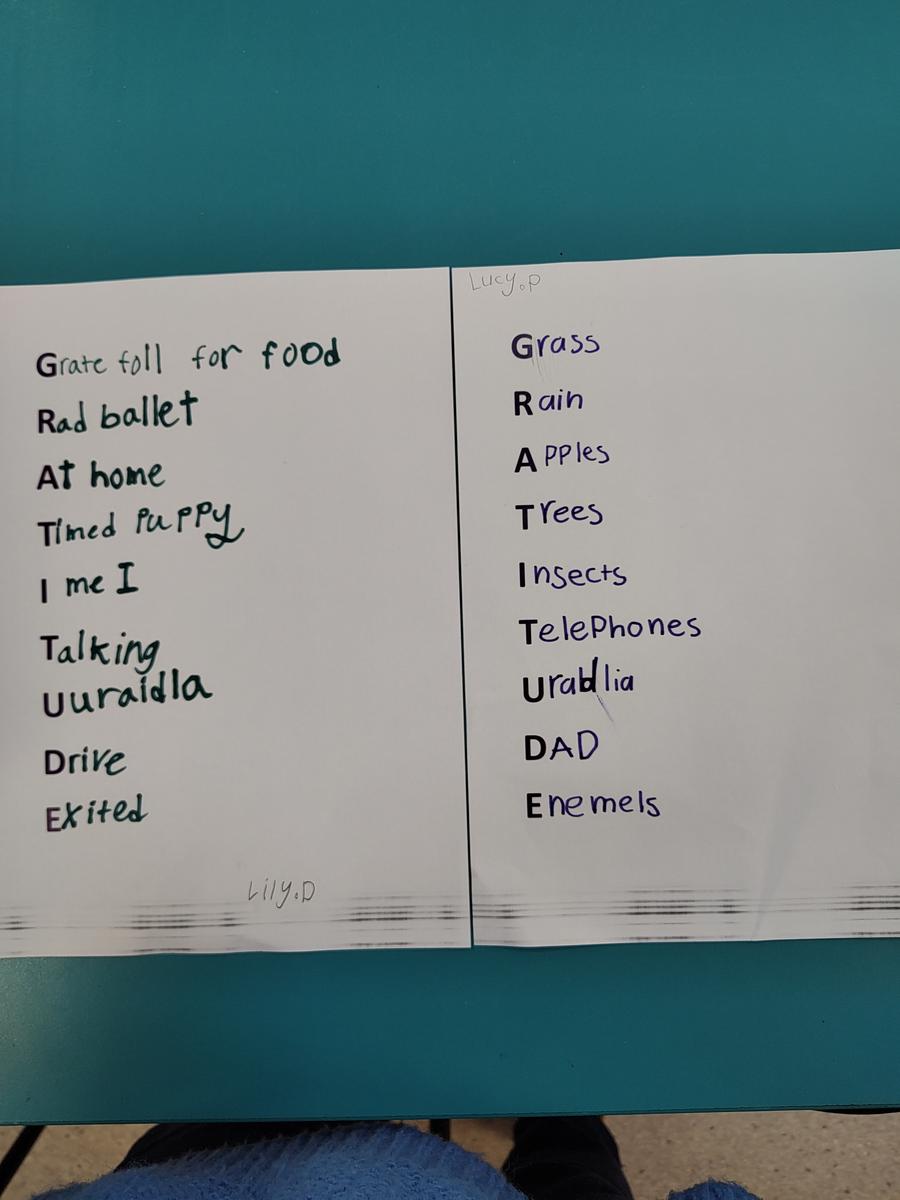 Grate foll for food
Rad ballet
At home
Timed Puppy
I me I
Talking
Uuraidla
Drive
Exited
Lily.D
Lucy.P
Grass
Rain
Apples
Trees
Insects
TelePhones
Uradlia
DAD
Enemels